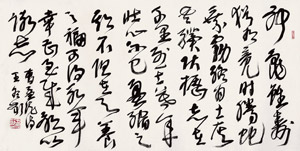 神龜雖壽
猶有竟時騰蛇
乘霧終為土灰
老驥伏櫪志在
千里烈士暮年
壯心不已盈縮之
期不但在天養
怡之福可得永年
幸甚至哉歌以
詠志